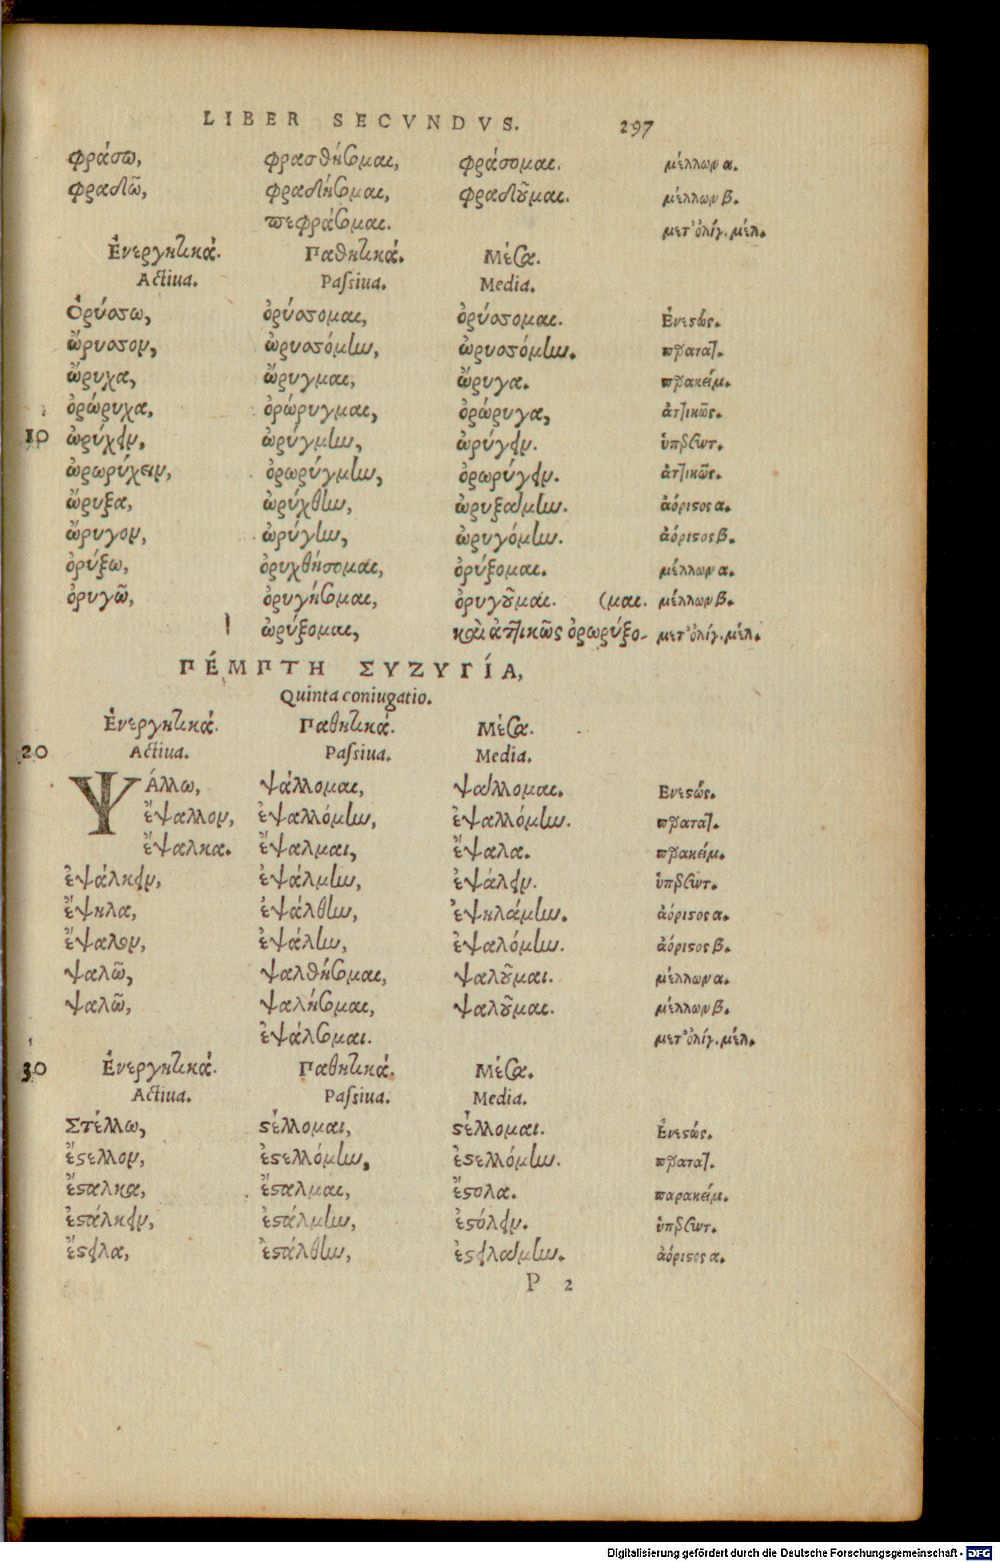 LIBER SECVNDVS. 297
φράσω, φρασθήσομαι, φράσομαι. μέλλων α.
φραδῶ, φραδήσομαι, φραδοῦμαι. μέλλων β.
πεφράσομαι. μετ' ὀλίγ. μέλ.
Ἐνεργητικά. Παθητικά. Μέσα.
Actiua. Paſsiua. Media.
Ὀρύσσω, ὀρύσσομαι, ὀρύσσομαι. Ἐνεστώς.
ὤρυσσον, ὠρυσσόμην, ὠρυσσόμην. παρατατ.
ὤρυχα, ὤρυγμαι, ὤρυγα. παρακείμ.
ὀρώρυχα, ὀρώρυγμαι, ὀρώρυγα, ἀττικῶς.
10 ὠρύχειν, ὠρύγμην, ὠρύγειν. ὑπερσυντ.
ὠρωρύχειν, ὀρωρύγμην, ὀρωρύγειν. ἀττικῶς.
ὤρυξα, ὠρύχθην, ὠρυξάμην. ἀόριστος α.
ὤρυγον, ὠρύγην, ὠρυγόμην. ἀόριστος β.
ὀρύξω, ὀρυχθήσομαι, ὀρύξομαι. μέλλων α.
ὀρυγῶ, ὀρυγήσομαι, ὀρυγοῦμαι. (μαι. μέλλων β.
ὠρύξομαι, καὶ ἀττικῶς ὀρωρύξο- μετ' ὀλίγ. μέλ.
ΠΈΜΠΤΗ ΣΥΖΥΓΊΑ,
Quinta coniugatio.
Ἐνεργητικά. Παθητικά. Μέσα.
20 Actiua. Paſsiua. Media.
ΨΆλλω, ψάλλομαι, ψάλλομαι. Ενεστώς.
ἔψαλλον, ἐψαλλόμην, ἐψαλλόμην. παρατατ.
ἔψαλκα. ἔψαλμαι, ἔψαλα. παρακείμ.
ἐψάλκειν, ἐψάλμην, ἐψάλειν. ὑπερσυντ.
ἔψηλα, ἐψάλθην, ἐψηλάμην. ἀόριστος α.
ἔψαλον, ἐψάλην, ἐψαλόμην. ἀόριστος β.
ψαλῶ, ψαλθήσομαι, ψαλοῦμαι. μέλλων α.
ψαλῶ, ψαλήσομαι, ψαλοῦμαι. μέλλων β.
ἐψάλσομαι. μετ' ὀλίγ. μέλ.
30 Ἐνεργητικά. Παθητικά. Μέσα.
Actiua. Paſsiua. Media.
Στέλλω, στέλλομαι, στέλλομαι. Ἐνεστώς.
ἔστελλον, ἐστελλόμην, ἐστελλόμην. παρατατ.
ἔσταλκα, ἔσταλμαι, ἔστολα. παρακείμ.
ἐστάλκειν, ἐστάλμην, ἐστόλειν. ὑπερσυντ.
ἔστειλα, ἐστάλθην, ἐστειλάμην. ἀόριστος α.
P 2
Digitalisierung gefördert durch die Deutsche Forschungsgemeinschaft - DFG